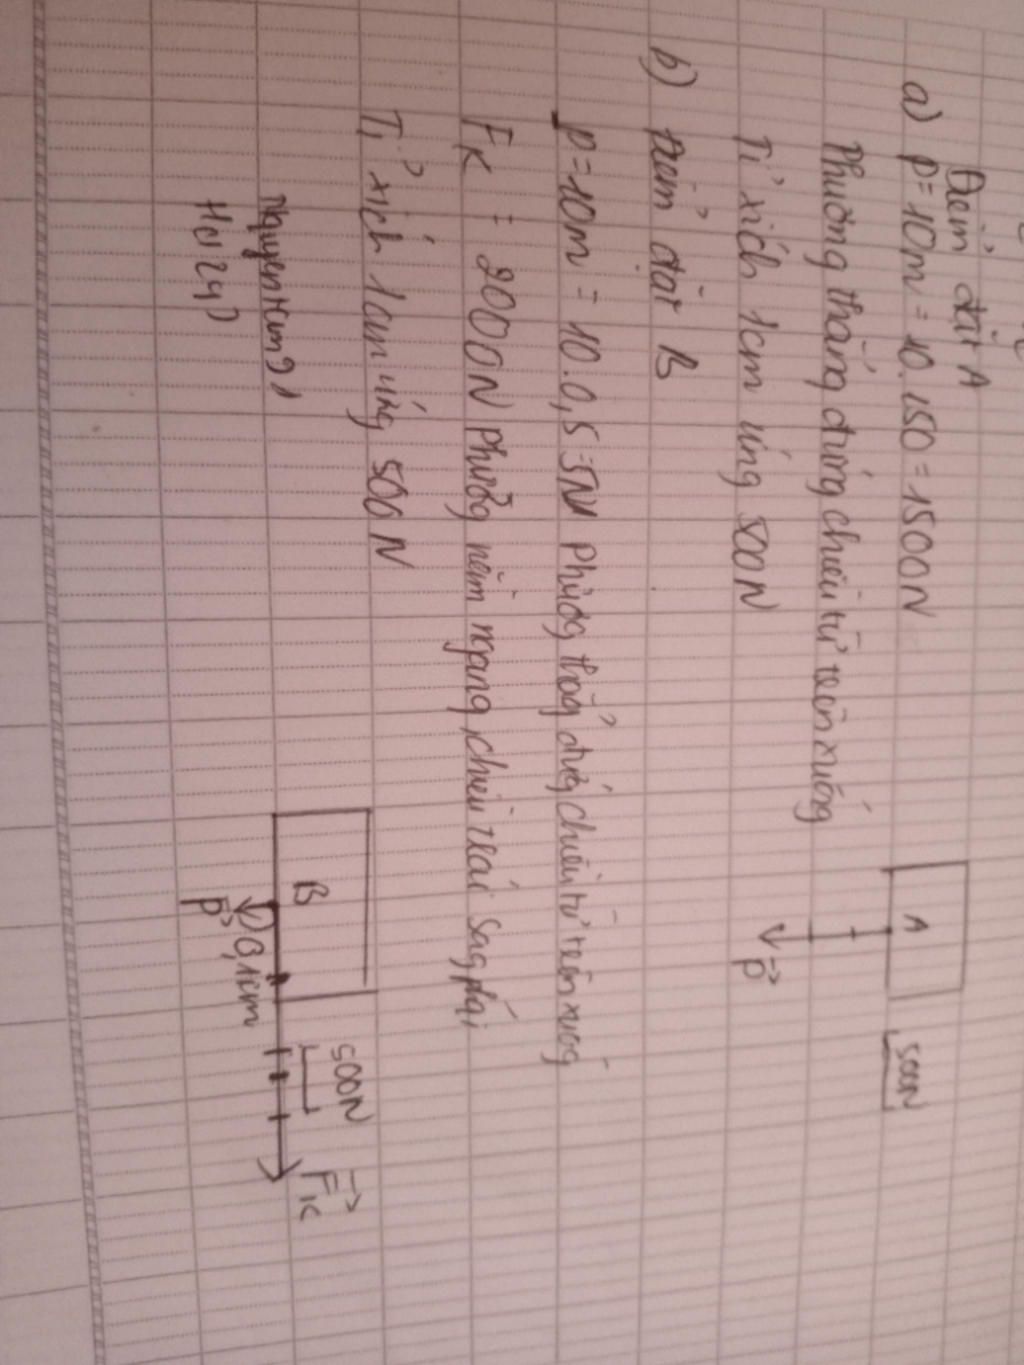 Điểm đặt A
a) P=10m = 10.150 = 1500N
Phương thẳng đứng chiều từ trên xuống
Tỉ xích 1cm ứng 500N
A
500N
P
b) Điểm đặt B
P=10m = 10.0,5=5N Phương thẳng đứng chiều từ trên xuống
FK = 2000N phương nằm ngang, chiều trái sang phải
Tỉ xích 1cm ứng 500N
500N
B
FK
0,1cm
P